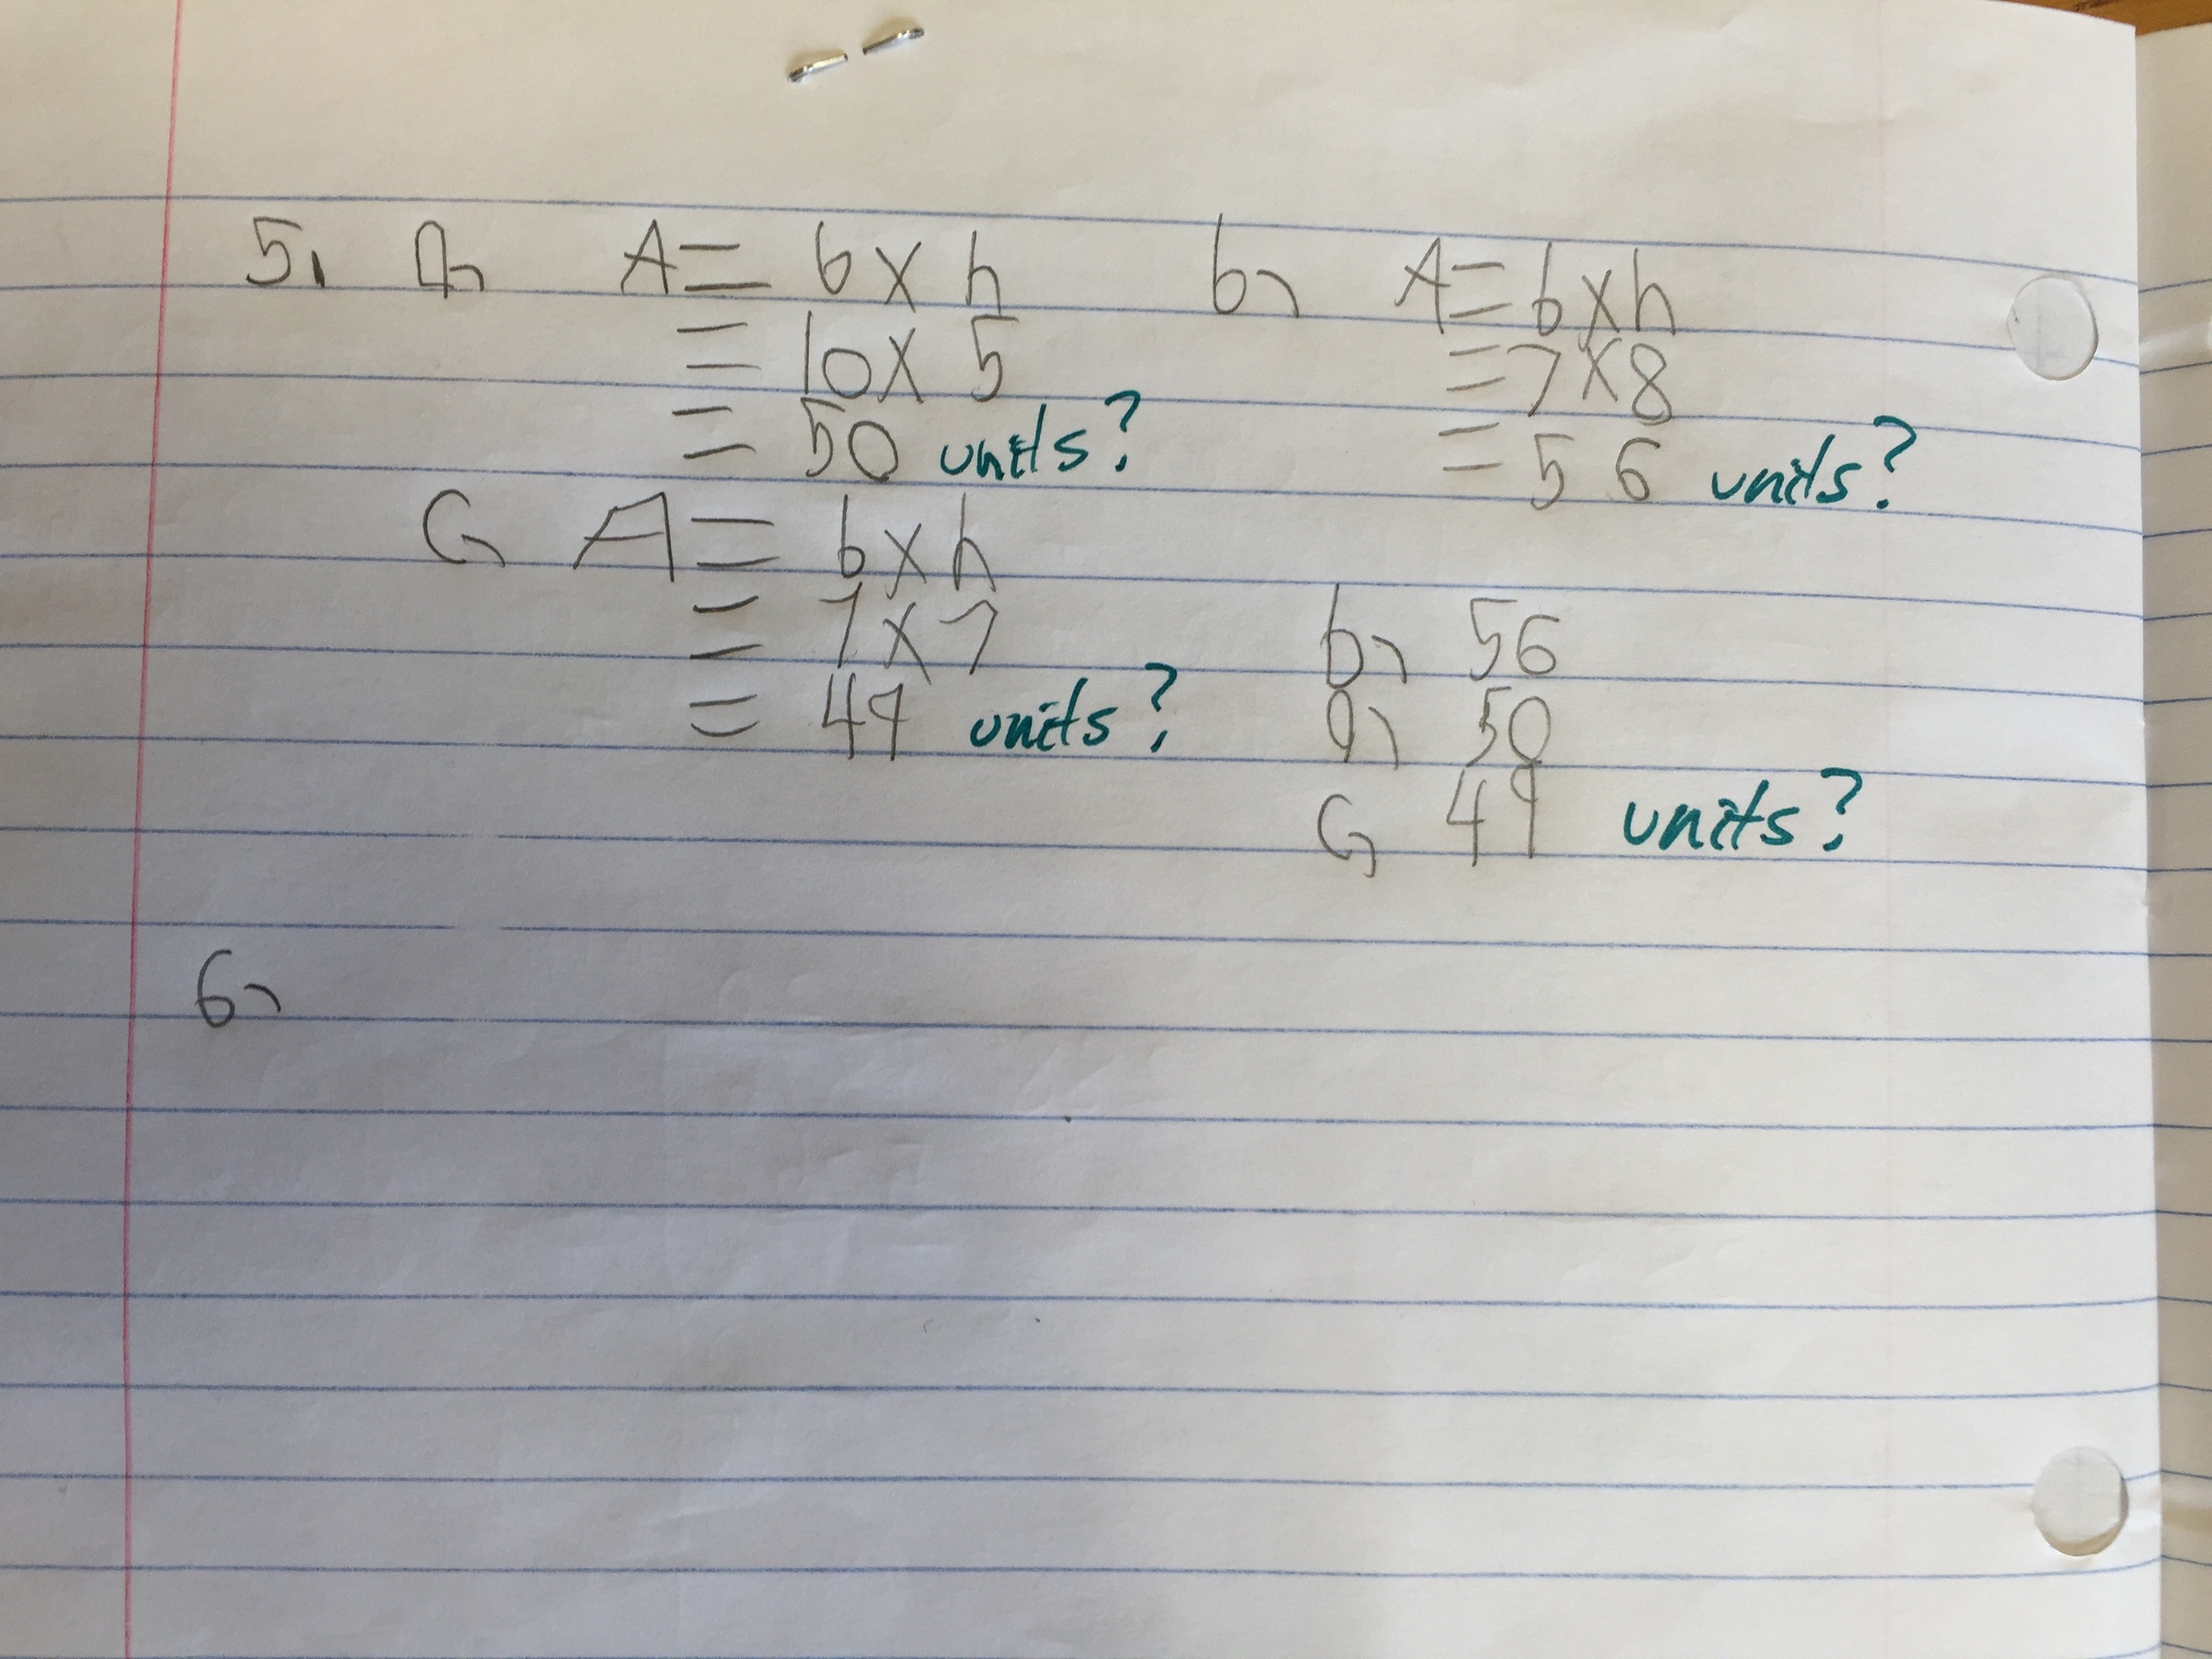 5. a) A = b x h
= 10 x 5
= 50 units?
b) A = b x h
= 7 x 8
= 56 units?
c) A = b x h
= 7 x 7
= 49 units?
b) 56
a) 50
c) 49 units?
6)